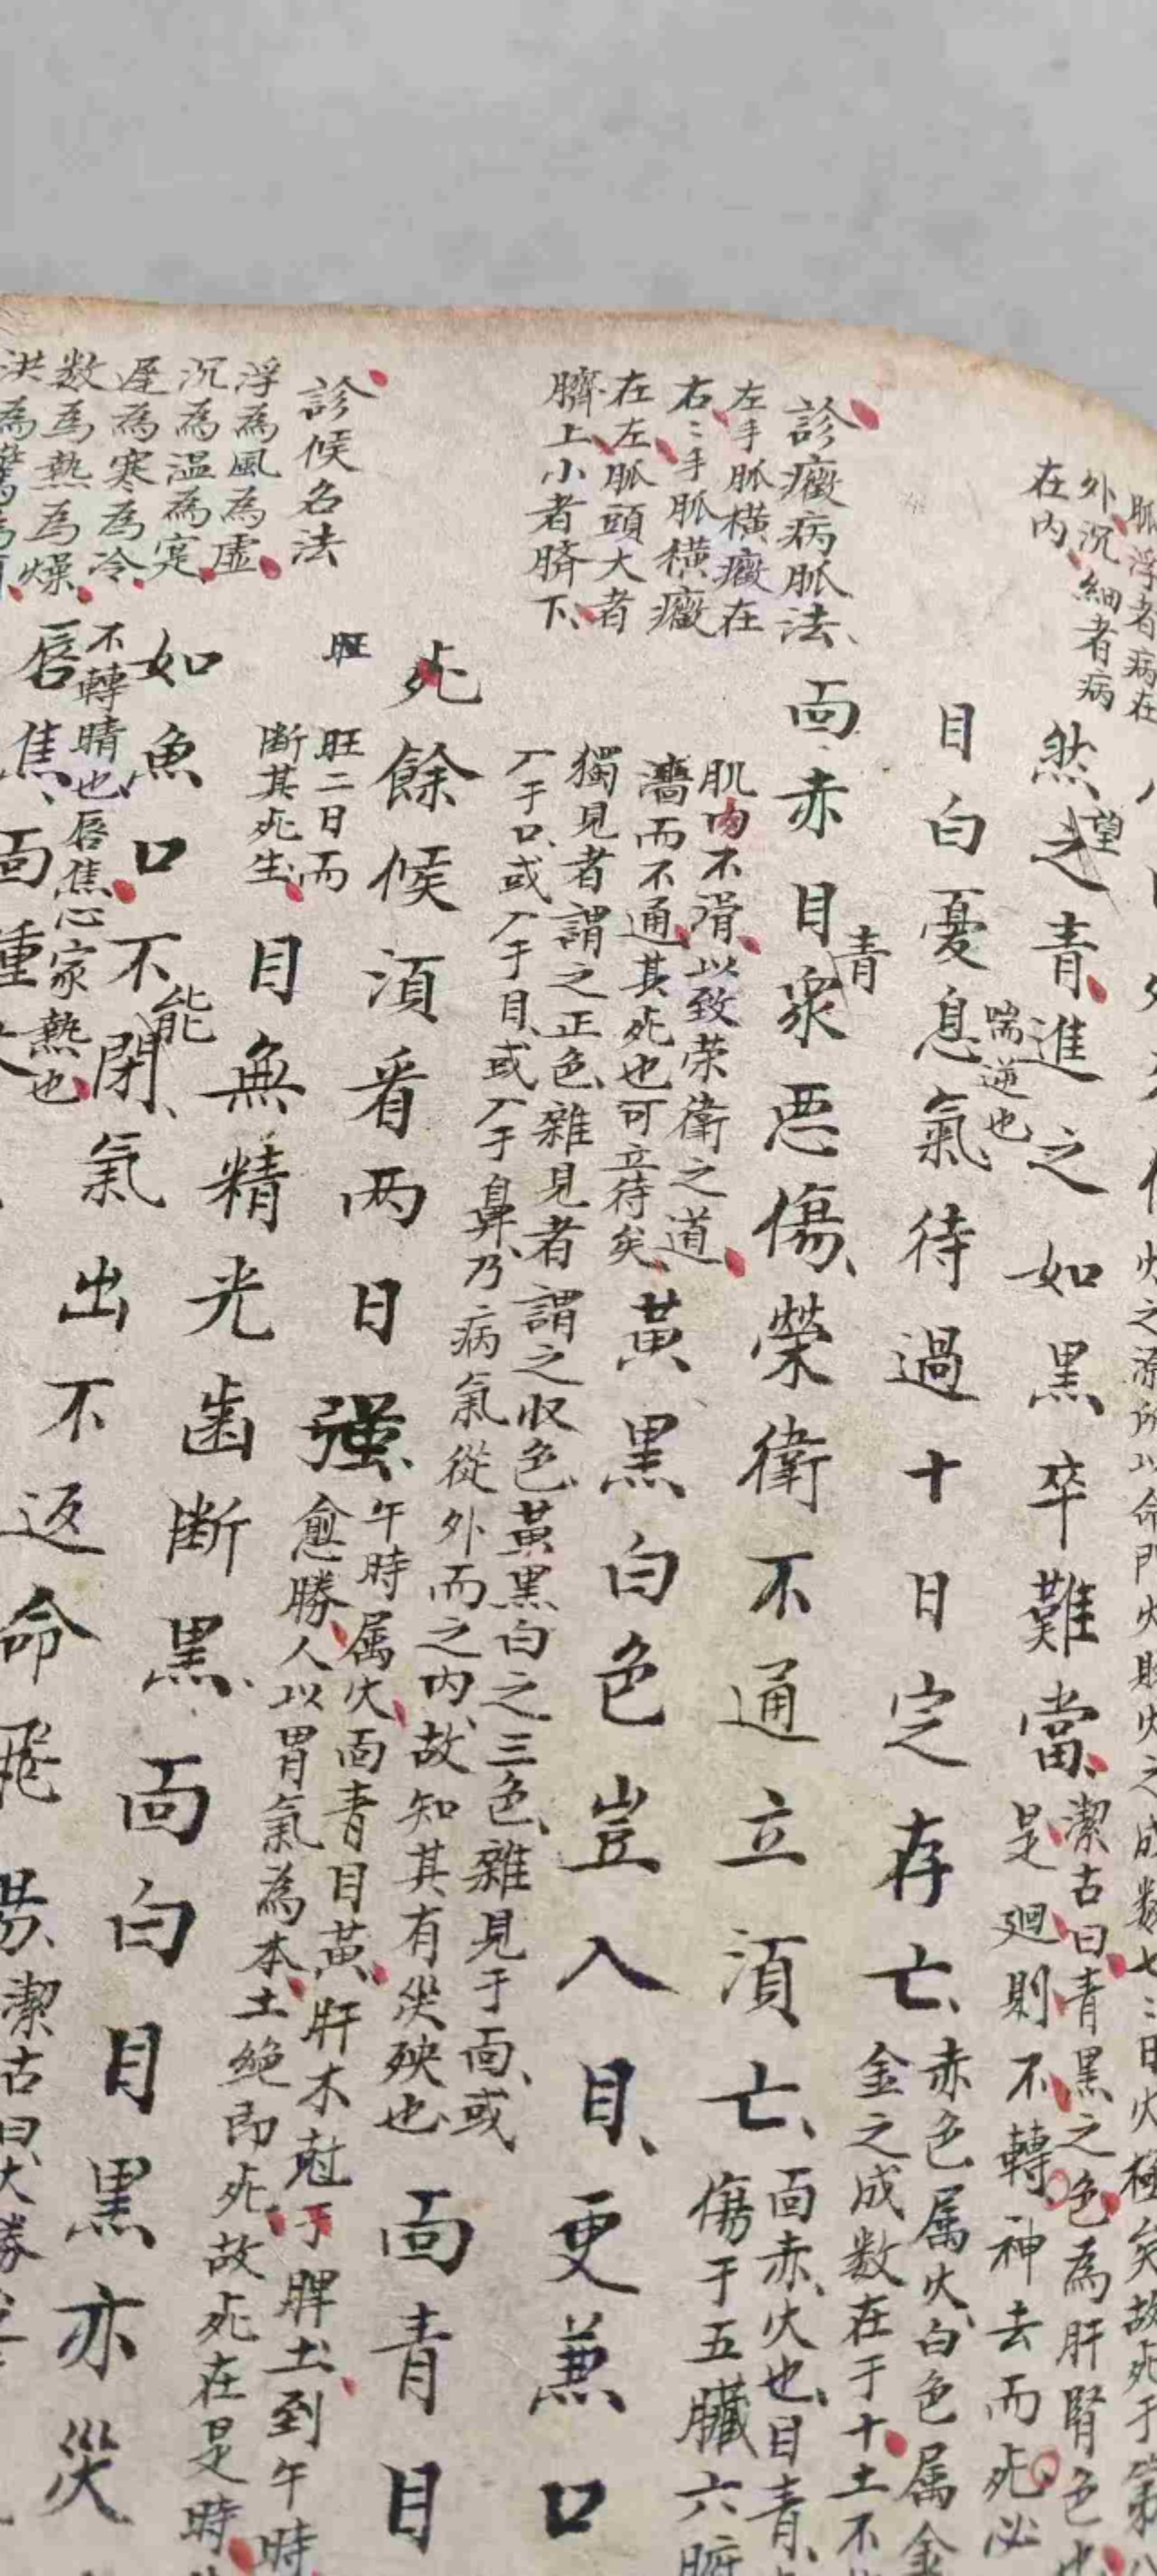 脈浮者病在
外沉細者病
在内
火之源所以命門火財火之成数七二日火極矣故死于
然之青進之如黑卒難當
望
潔古曰青黑之色為肝腎色也
是廻則不轉神去而死必
目白憂息氣待過十日定存亡
喘逆也
赤色属火白色属金
金之成数在于十土不
診癥病脈法
左手脈横癥在
右二手脈横癥
在左脈頭大者
臍上小者臍下
面赤目衆悪傷榮衛不通立湏亡
青
面赤火也目青
傷于五臟六腑
肌肉不滑以致荣衛之道
濇而不通其死也可立待矣
黃黑白色豈入目更蒹口
獨見者謂之正色雜見者謂之収色黃黑白之三色雜見于面或
入于口或入于目或入于鼻乃病氣從外而之内故知其有災殃也
面青目
診候名法
浮為風為虚
沉為温為寔
遅為寒為冷
数為熱為燥
洪為
死餘候湏看两日强
旺
旺二日而
断其死生
午時属火面青目黃肝木尅于脾土到午時
愈勝人以胃氣為本土絶即死故死在是時
目無精光歯断黑面白目黑亦災
如魚口不閉氣出不返命飛
能
不轉睛也唇焦心家熱也
唇焦面
潔古曰火勝